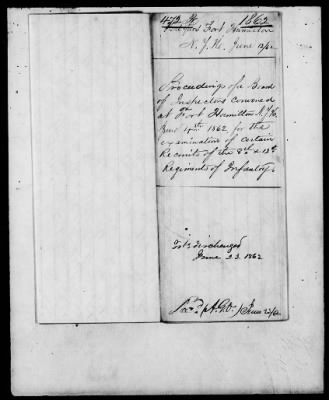 1862
Fort Hamilton
N.Y.H. June 12/62
Proceedings of a Board
of Inspectors convened
at Fort Hamilton N.Y.H.
June 1862, for the
examination of certain
Recruits of the 3d & 12th
Regiments of Infantry.
discharged
June 23. 1862
Recd. (A.G.O.) June 23/62